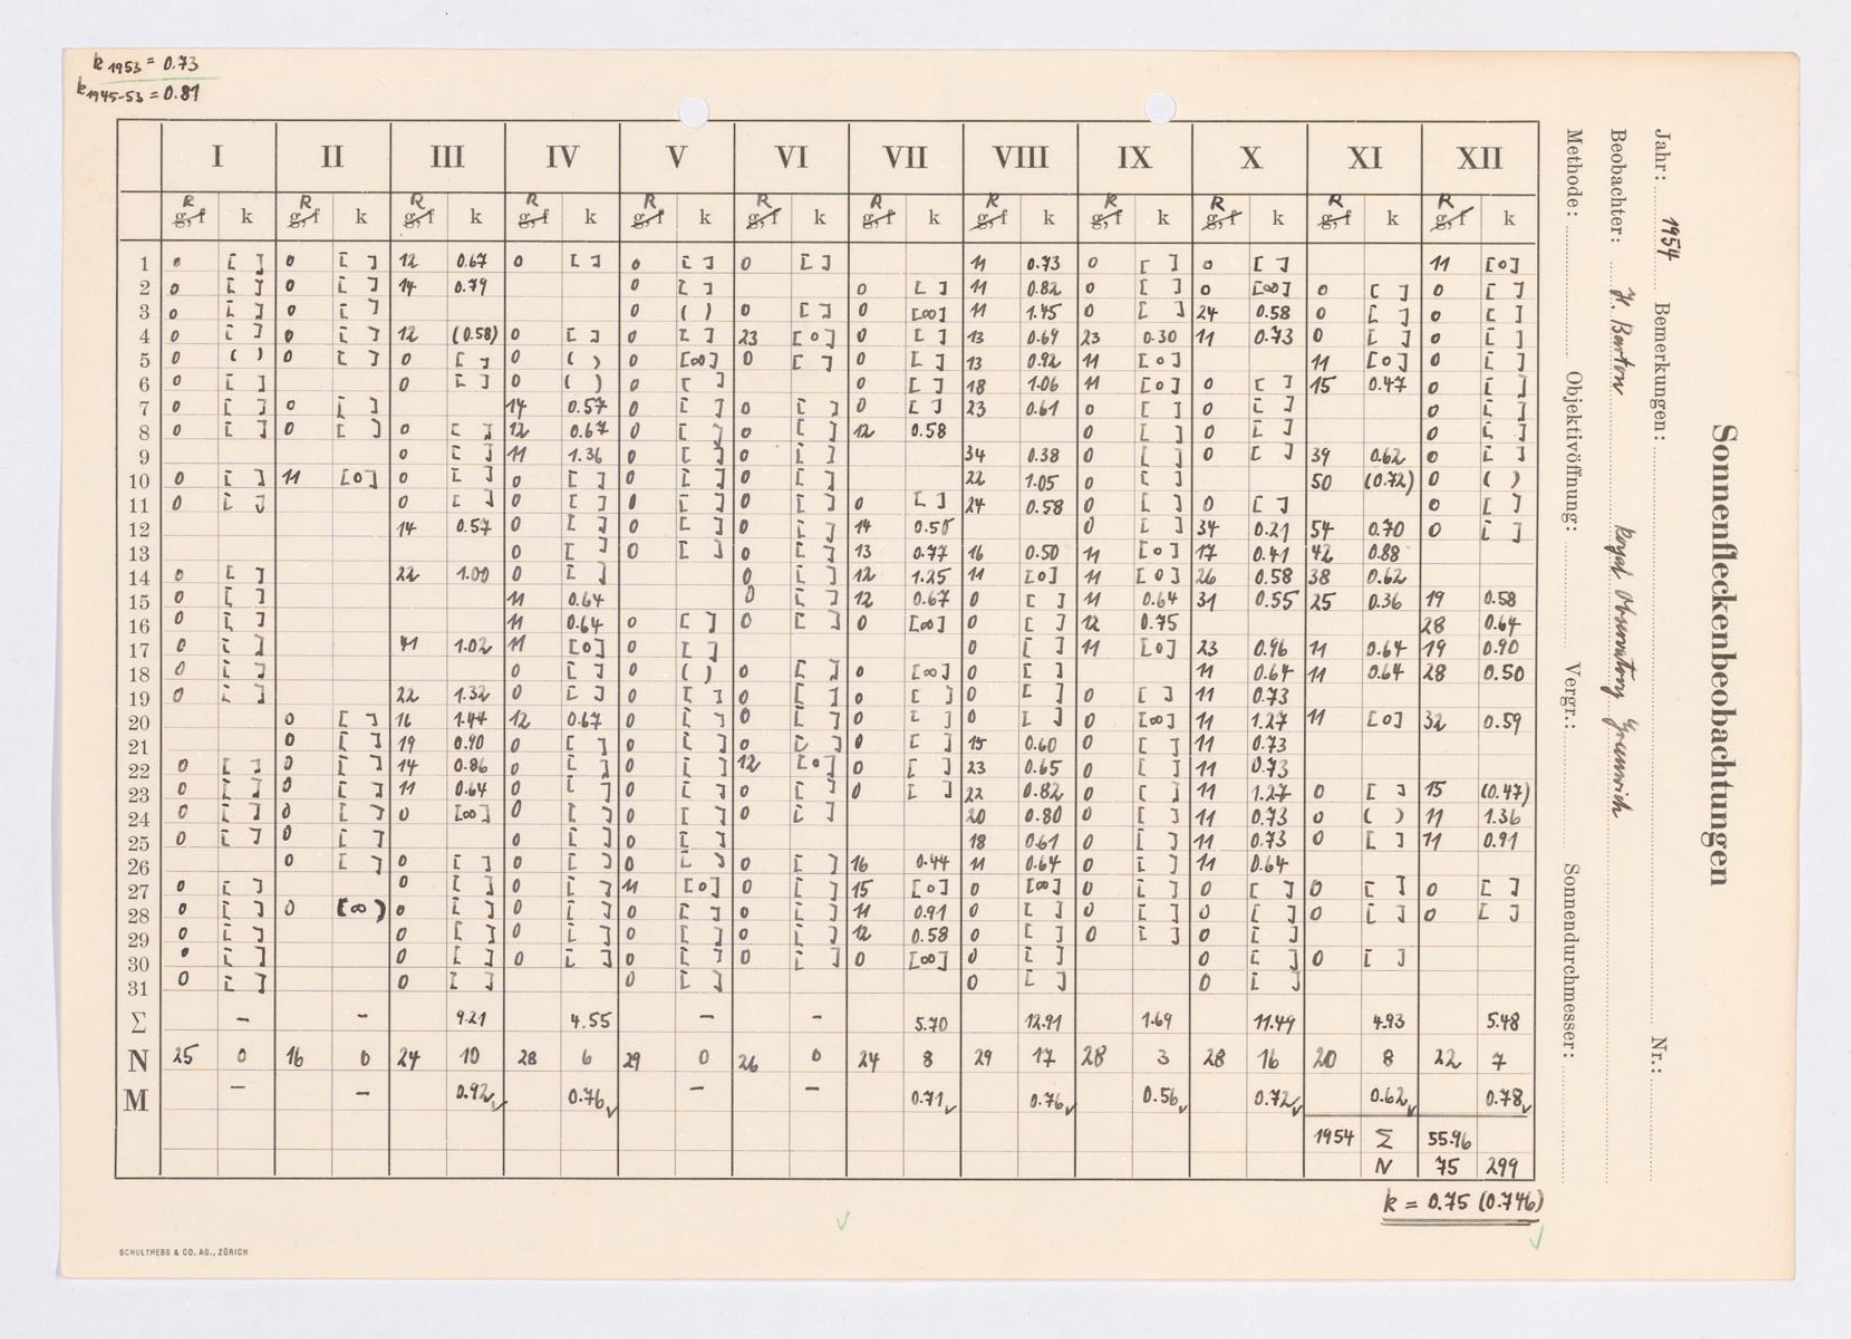 k 1953 = 0.73
k 1945-53 = 0.81
Sonnenfleckenbeobachtungen
Jahr: 1954 Bemerkungen: Nr.:
Beobachter: H. Barton Royal Observatory Greenwich
Methode: Objektivöffnung: Vergr.: Sonnendurchmesser:
I II III IV V VI VII VIII IX X XI XII
R R R R R R R R R R R R
g,f k g,f k g,f k g,f k g,f k g,f k g,f k g,f k g,f k g,f k g,f k g,f k
1 0 [ ] 0 [ ] 12 0.67 0 [ ] 0 [ ] 0 [ ] 11 0.73 0 [ ] 0 [ ] 11 [0]
2 0 [ ] 0 [ ] 14 0.79 0 [ ] 0 [ ] 11 0.82 0 [ ] 0 [∞] 0 [ ] 0 [ ]
3 0 [ ] 0 [ ] 0 ( ) 0 [ ] 0 [∞] 11 1.45 0 [ ] 24 0.58 0 [ ] 0 [ ]
4 0 [ ] 0 [ ] 12 (0.58) 0 [ ] 0 [ ] 23 [0] 0 [ ] 13 0.69 23 0.30 11 0.73 0 [ ] 0 [ ]
5 0 ( ) 0 [ ] 0 [ ] 0 ( ) 0 [∞] 0 [ ] 0 [ ] 13 0.92 11 [0] 11 [0] 0 [ ]
6 0 [ ] 0 [ ] 0 ( ) 0 [ ] 0 [ ] 18 1.06 11 [0] 0 [ ] 15 0.47 0 [ ]
7 0 [ ] 0 [ ] 14 0.57 0 [ ] 0 [ ] 0 [ ] 23 0.61 0 [ ] 0 [ ] 0 [ ]
8 0 [ ] 0 [ ] 0 [ ] 12 0.67 0 [ ] 0 [ ] 12 0.58 0 [ ] 0 [ ] 0 [ ]
9 0 [ ] 11 1.36 0 [ ] 0 [ ] 34 0.38 0 [ ] 0 [ ] 39 0.62 0 [ ]
10 0 [ ] 11 [0] 0 [ ] 0 [ ] 0 [ ] 0 [ ] 22 1.05 0 [ ] 50 (0.72) 0 ( )
11 0 [ ] 0 [ ] 0 [ ] 0 [ ] 0 [ ] 0 [ ] 24 0.58 0 [ ] 0 [ ] 0 [ ]
12 14 0.57 0 [ ] 0 [ ] 0 [ ] 14 0.50 0 [ ] 34 0.21 54 0.70 0 [ ]
13 0 [ ] 0 [ ] 0 [ ] 13 0.77 16 0.50 11 [0] 17 0.41 42 0.88
14 0 [ ] 22 1.00 0 [ ] 0 [ ] 12 1.25 11 [0] 11 [0] 26 0.58 38 0.62
15 0 [ ] 11 0.64 0 [ ] 12 0.67 0 [ ] 11 0.64 31 0.55 25 0.36 19 0.58
16 0 [ ] 11 0.64 0 [ ] 0 [ ] 0 [∞] 0 [ ] 12 0.75 28 0.64
17 0 [ ] 41 1.02 11 [0] 0 [ ] 0 [ ] 11 [0] 23 0.96 11 0.64 19 0.90
18 0 [ ] 0 [ ] 0 ( ) 0 [ ] 0 [∞] 0 [ ] 11 0.64 11 0.64 28 0.50
19 0 [ ] 22 1.32 0 [ ] 0 [ ] 0 [ ] 0 [ ] 0 [ ] 0 [ ] 11 0.73
20 0 [ ] 16 1.44 12 0.67 0 [ ] 0 [ ] 0 [ ] 0 [ ] 0 [∞] 11 1.27 11 [0] 32 0.59
21 0 [ ] 19 0.90 0 [ ] 0 [ ] 0 [ ] 0 [ ] 15 0.60 0 [ ] 11 0.73
22 0 [ ] 0 [ ] 14 0.86 0 [ ] 0 [ ] 12 [0] 0 [ ] 23 0.65 0 [ ] 11 0.73
23 0 [ ] 0 [ ] 11 0.64 0 [ ] 0 [ ] 0 [ ] 0 [ ] 22 0.82 0 [ ] 11 1.27 0 [ ] 15 (0.47)
24 0 [ ] 0 [ ] 0 [∞] 0 [ ] 0 [ ] 0 [ ] 20 0.80 0 [ ] 11 0.73 0 ( ) 11 1.36
25 0 [ ] 0 [ ] 0 [ ] 0 [ ] 18 0.61 0 [ ] 11 0.73 0 [ ] 11 0.91
26 0 [ ] 0 [ ] 0 [ ] 0 [ ] 0 [ ] 16 0.44 11 0.64 0 [ ] 11 0.64
27 0 [ ] 0 [ ] 0 [ ] 11 [0] 0 [ ] 15 [0] 0 [∞] 0 [ ] 0 [ ] 0 [ ] 0 [ ]
28 0 [ ] 0 [∞) 0 [ ] 0 [ ] 0 [ ] 0 [ ] 11 0.91 0 [ ] 0 [ ] 0 [ ] 0 [ ] 0 [ ]
29 0 [ ] 0 [ ] 0 [ ] 0 [ ] 0 [ ] 12 0.58 0 [ ] 0 [ ] 0 [ ]
30 0 [ ] 0 [ ] 0 [ ] 0 [ ] 0 [ ] 0 [∞] 0 [ ] 0 [ ] 0 [ ]
31 0 [ ] 0 [ ] 0 [ ] 0 [ ] 0 [ ]
Σ – – 9.21 4.55 – – 5.70 12.91 1.69 11.49 4.93 5.48
N 25 0 16 0 24 10 28 6 29 0 26 0 24 8 29 17 28 3 28 16 20 8 22 7
M – – 0.92 0.76 – – 0.71 0.76 0.56 0.72 0.62 0.78
1954 Σ 55.96
N 75 299
k = 0.75 (0.746)
SCHULTHESS & CO. AG., ZÜRICH